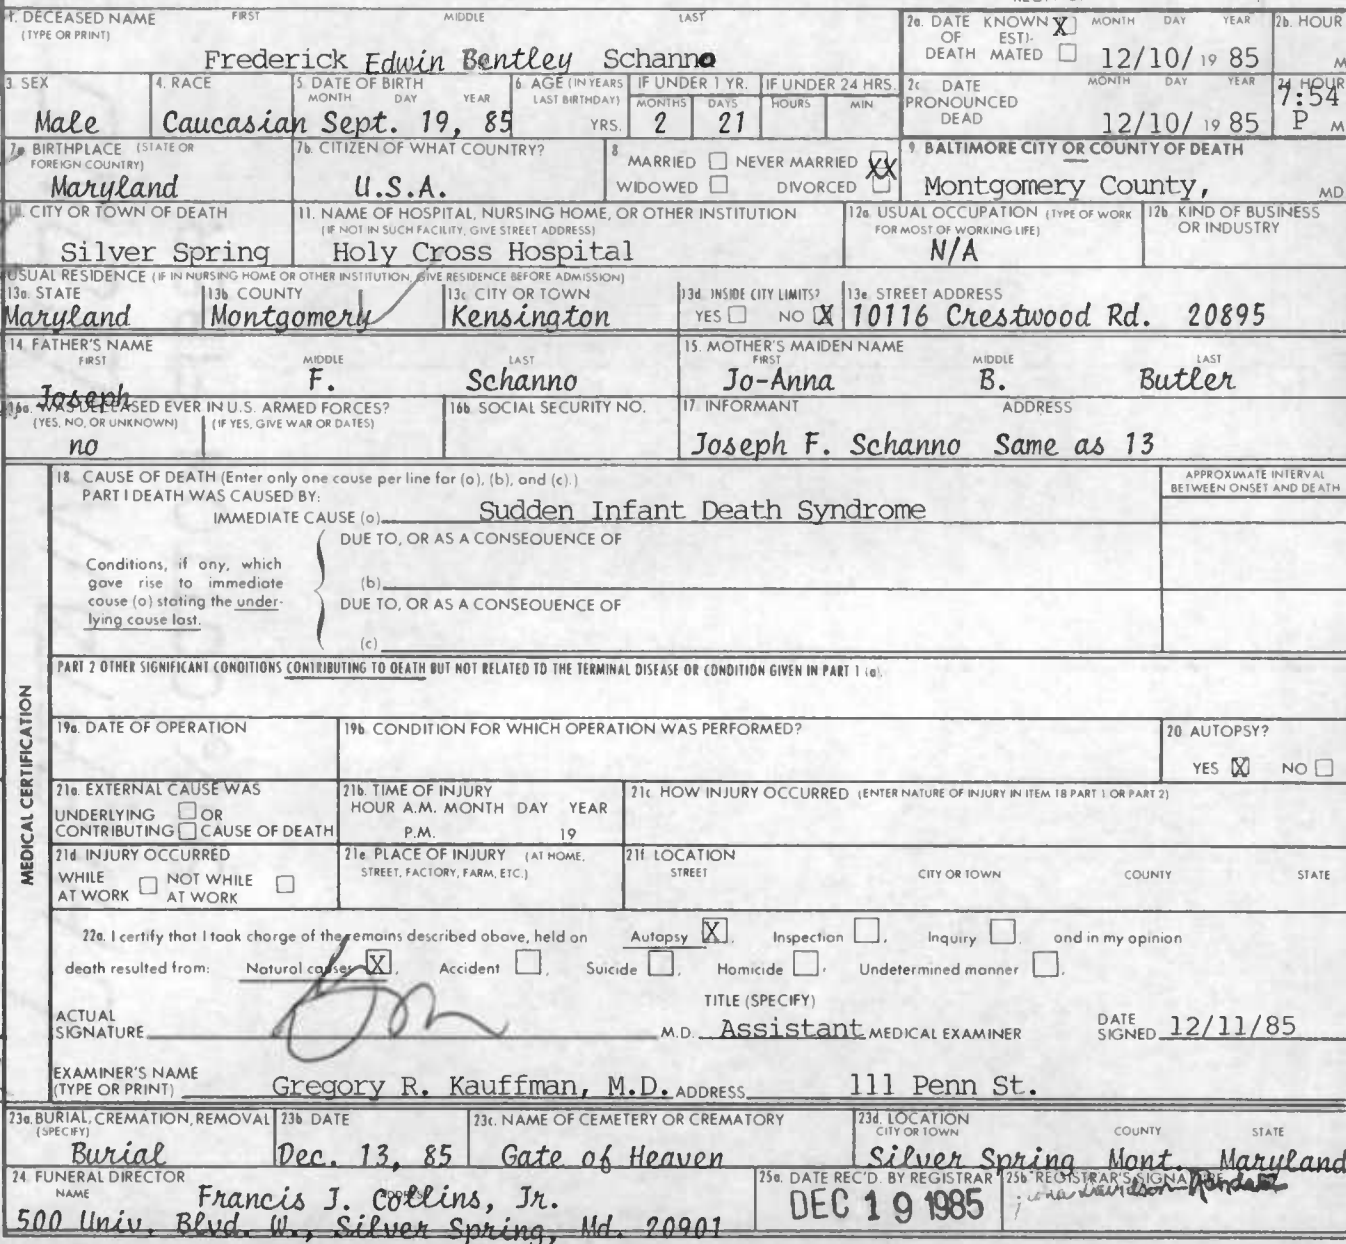 1. DECEASED NAME FIRST MIDDLE LAST
(TYPE OR PRINT)
Frederick Edwin Bentley Schanno
2a. DATE KNOWN X MONTH DAY YEAR 2b. HOUR
OF ESTI-
DEATH MATED 12/10/ 19 85 M
3. SEX 4. RACE 5. DATE OF BIRTH 6. AGE (IN YEARS IF UNDER 1 YR. IF UNDER 24 HRS.
MONTH DAY YEAR LAST BIRTHDAY) MONTHS DAYS HOURS MIN
Male Caucasian Sept. 19, 85 YRS. 2 21
2c DATE MONTH DAY YEAR 2d HOUR
PRONOUNCED 7:54
DEAD 12/10/ 19 85 P M
7a BIRTHPLACE (STATE OR
FOREIGN COUNTRY)
Maryland
7b. CITIZEN OF WHAT COUNTRY?
U.S.A.
8 MARRIED NEVER MARRIED XX
WIDOWED DIVORCED
9. BALTIMORE CITY OR COUNTY OF DEATH
Montgomery County, MD
10. CITY OR TOWN OF DEATH
Silver Spring
11. NAME OF HOSPITAL, NURSING HOME, OR OTHER INSTITUTION
(IF NOT IN SUCH FACILITY, GIVE STREET ADDRESS)
Holy Cross Hospital
12a. USUAL OCCUPATION (TYPE OF WORK
FOR MOST OF WORKING LIFE)
N/A
12b. KIND OF BUSINESS
OR INDUSTRY
USUAL RESIDENCE (IF IN NURSING HOME OR OTHER INSTITUTION, GIVE RESIDENCE BEFORE ADMISSION)
13a. STATE 13b COUNTY 13c CITY OR TOWN 13d INSIDE CITY LIMITS? 13e STREET ADDRESS
Maryland Montgomery Kensington YES NO X 10116 Crestwood Rd. 20895
14 FATHER'S NAME
FIRST MIDDLE LAST
Joseph F. Schanno
15. MOTHER'S MAIDEN NAME
FIRST MIDDLE LAST
Jo-Anna B. Butler
16a. WAS DECEASED EVER IN U.S. ARMED FORCES?
(YES, NO, OR UNKNOWN) (IF YES, GIVE WAR OR DATES)
no
16b. SOCIAL SECURITY NO.
17. INFORMANT ADDRESS
Joseph F. Schanno Same as 13
MEDICAL CERTIFICATION
18 CAUSE OF DEATH (Enter only one cause per line for (a), (b), and (c).)
PART I DEATH WAS CAUSED BY:
IMMEDIATE CAUSE (a) Sudden Infant Death Syndrome
APPROXIMATE INTERVAL
BETWEEN ONSET AND DEATH
DUE TO, OR AS A CONSEQUENCE OF
Conditions, if any, which
gave rise to immediate
cause (a) stating the under-
lying cause last.
(b)
DUE TO, OR AS A CONSEQUENCE OF
(c)
PART 2 OTHER SIGNIFICANT CONDITIONS CONTRIBUTING TO DEATH BUT NOT RELATED TO THE TERMINAL DISEASE OR CONDITION GIVEN IN PART 1 (a).
19a. DATE OF OPERATION 19b. CONDITION FOR WHICH OPERATION WAS PERFORMED? 20 AUTOPSY?
YES X NO
21a. EXTERNAL CAUSE WAS
UNDERLYING OR
CONTRIBUTING CAUSE OF DEATH
21b. TIME OF INJURY
HOUR A.M. MONTH DAY YEAR
P.M. 19
21c HOW INJURY OCCURRED (ENTER NATURE OF INJURY IN ITEM 18 PART 1 OR PART 2)
21d INJURY OCCURRED
WHILE NOT WHILE
AT WORK AT WORK
21e PLACE OF INJURY (AT HOME,
STREET, FACTORY, FARM, ETC.)
21f LOCATION
STREET CITY OR TOWN COUNTY STATE
22a. I certify that I took charge of the remains described above, held on Autopsy X, Inspection , Inquiry , and in my opinion
death resulted from: Natural causes X, Accident , Suicide , Homicide , Undetermined manner .
TITLE (SPECIFY)
ACTUAL
SIGNATURE M.D. Assistant MEDICAL EXAMINER DATE
SIGNED 12/11/85
EXAMINER'S NAME
(TYPE OR PRINT) Gregory R. Kauffman, M.D. ADDRESS 111 Penn St.
23a. BURIAL, CREMATION, REMOVAL 23b DATE 23c. NAME OF CEMETERY OR CREMATORY 23d. LOCATION
(SPECIFY) CITY OR TOWN COUNTY STATE
Burial Dec. 13, 85 Gate of Heaven Silver Spring Mont. Maryland
24 FUNERAL DIRECTOR
NAME
Francis J. Collins, Jr.
500 Univ. Blvd. W., Silver Spring, Md. 20901
25a. DATE REC'D. BY REGISTRAR
DEC 19 1985
25b REGISTRAR'S SIGNATURE
Davidson-Randall